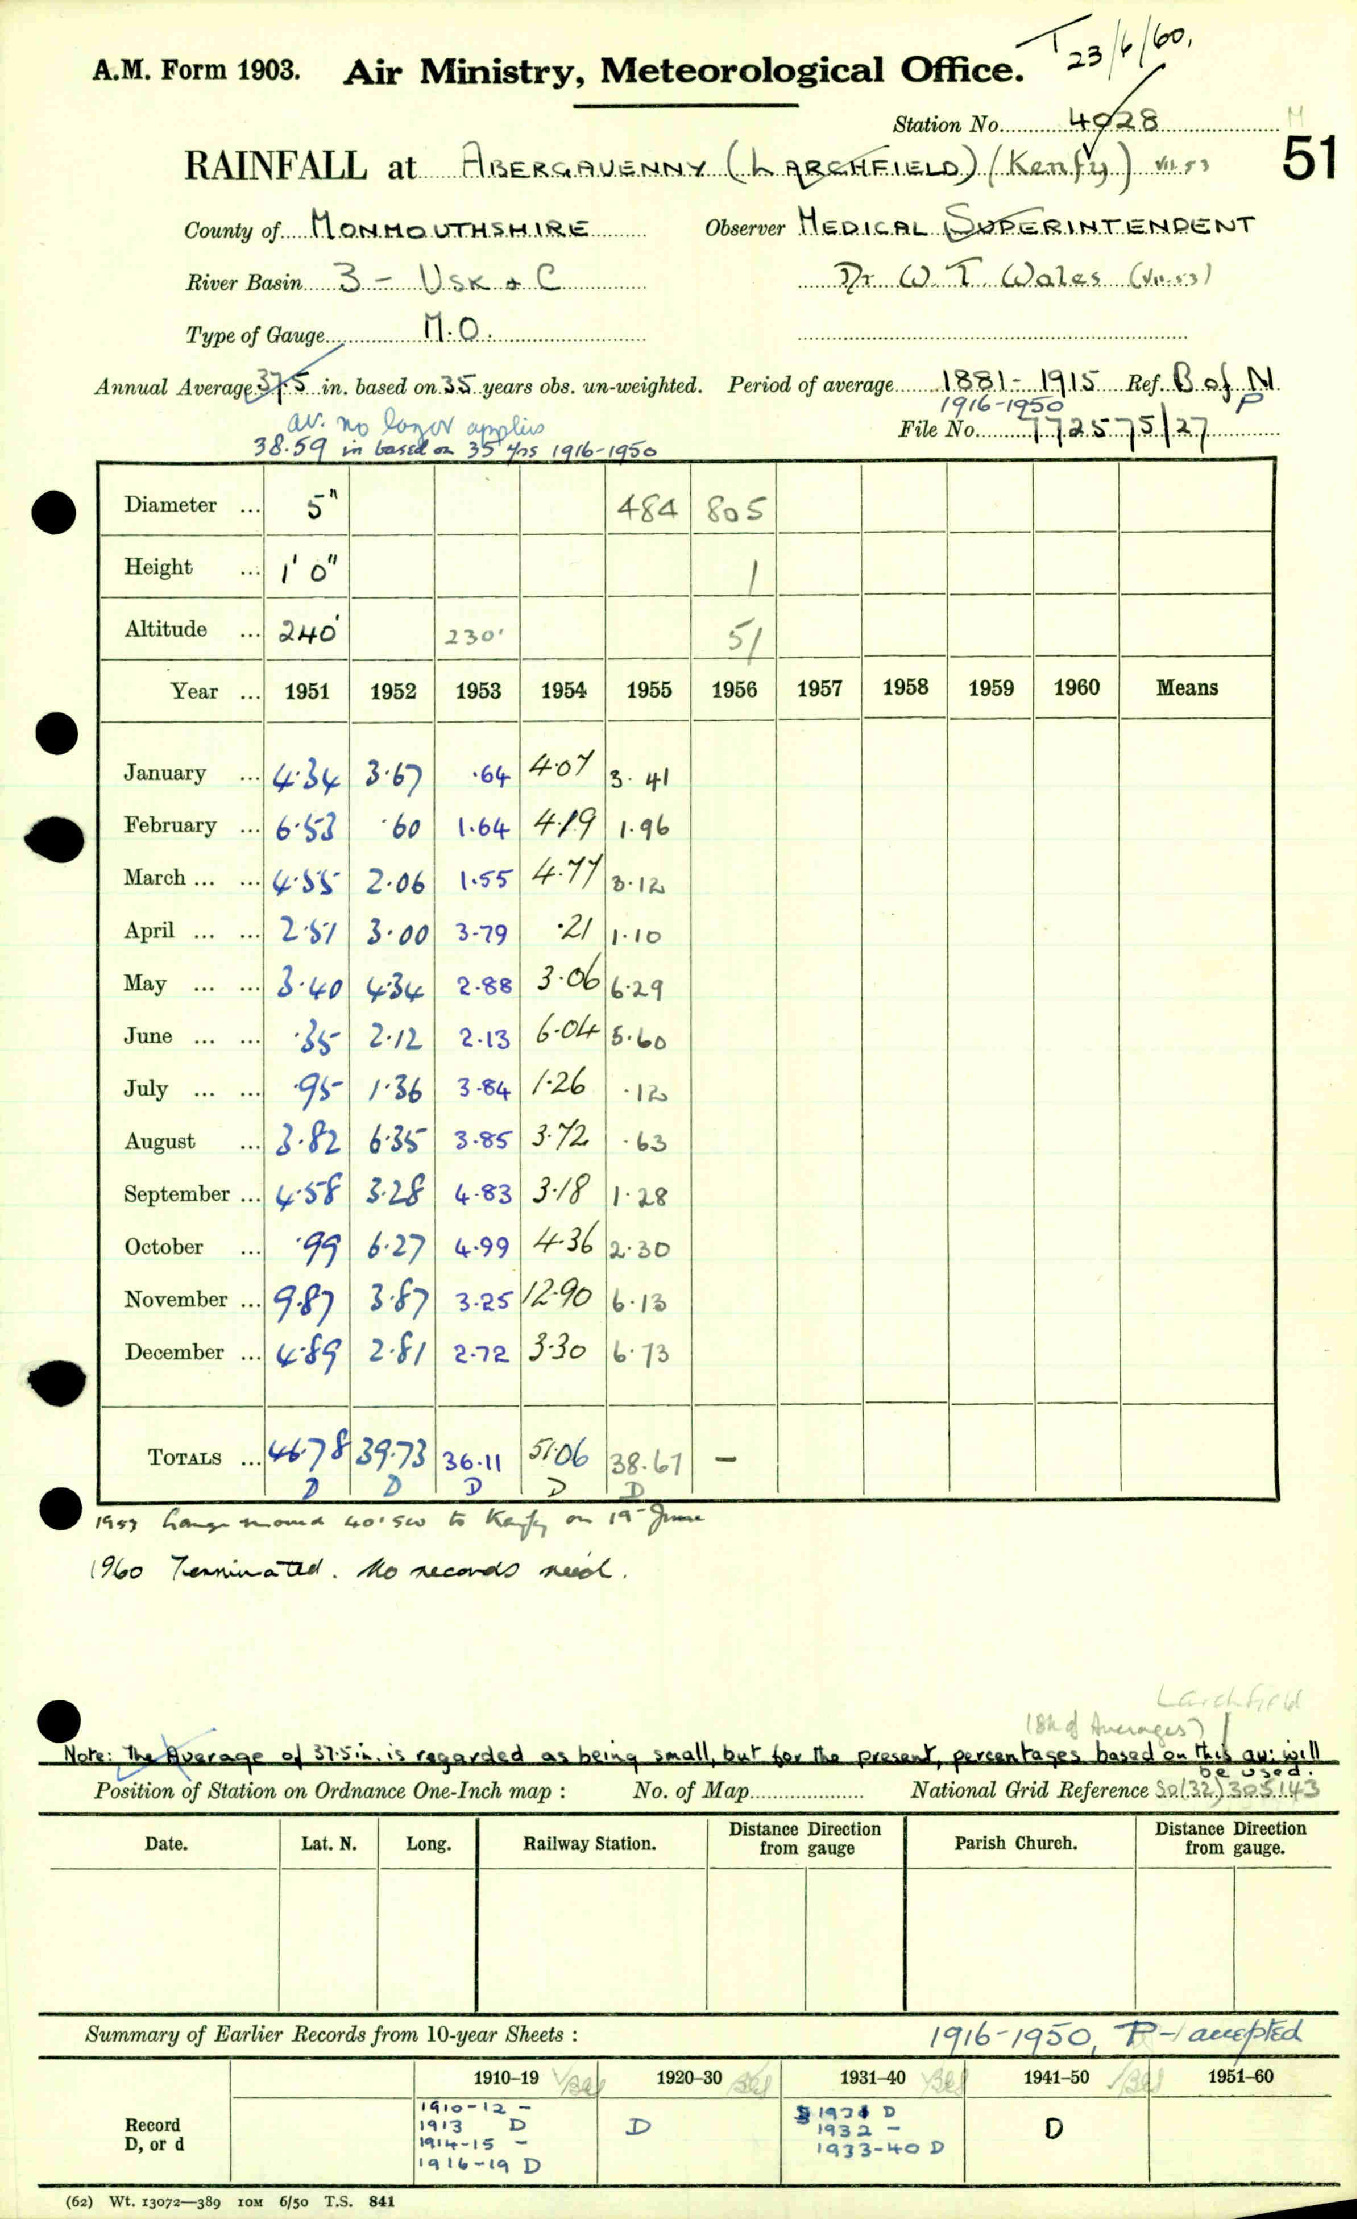 T 23/6/60.
A.M. Form 1903. Air Ministry, Meteorological Office.
Station No. 4028
M
51
RAINFALL at ABERGAVENNY (LARCHFIELD) (Kenfy) VII.53
County of MONMOUTHSHIRE Observer MEDICAL SUPERINTENDENT
River Basin 3 - USK & C Dr W. T. Wales (VII.53)
Type of Gauge M.O.
Annual Average 37.5 in. based on 35 years obs. un-weighted. Period of average 1881-1915 Ref. B of N
1916-1950 P
av. no longer applies File No. 772575/27
38.59 in based on 35 yrs 1916-1950
Diameter ... 5" 484 805
Height ... 1' 0" 1
Altitude ... 240' 230' 51
Year ... 1951 1952 1953 1954 1955 1956 1957 1958 1959 1960 Means
January ... 4.34 3.67 .64 4.07 3.41
February ... 6.53 .60 1.64 4.19 1.96
March ... ... 4.55 2.06 1.55 4.77 3.12
April ... ... 2.51 3.00 3.79 .21 1.10
May ... ... 3.40 4.34 2.88 3.06 6.29
June ... ... .35 2.12 2.13 6.04 5.60
July ... ... .95 1.36 3.84 1.26 .12
August ... 3.82 6.35 3.85 3.72 .63
September ... 4.58 3.28 4.83 3.18 1.28
October ... .99 6.27 4.99 4.36 2.30
November ... 9.87 3.87 3.25 12.90 6.13
December ... 4.89 2.81 2.72 3.30 6.73
TOTALS ... 46.78 39.73 36.11 51.06 38.67 -
D D D D D
1953 Gauge moved 40' SW to Kenfy on 19th June
1960 Terminated. No records rec'd.
Larchfield
(Bk of Averages)
Note: The Average of 37.5 in. is regarded as being small, but for the present, percentages based on this av: will
be used.
Position of Station on Ordnance One-Inch map : No. of Map National Grid Reference SO(32)305143
Date. Lat. N. Long. Railway Station. Distance from gauge Direction Parish Church. Distance from gauge. Direction
Summary of Earlier Records from 10-year Sheets : 1916-1950, P - accepted
1910-19 1920-30 1931-40 1941-50 1951-60
Record D, or d
1910-12 -
1913 D
1914-15 -
1916-19 D
D
1931 D
1932 -
1933-40 D
D
(62) Wt. 13072—389 10M 6/50 T.S. 841